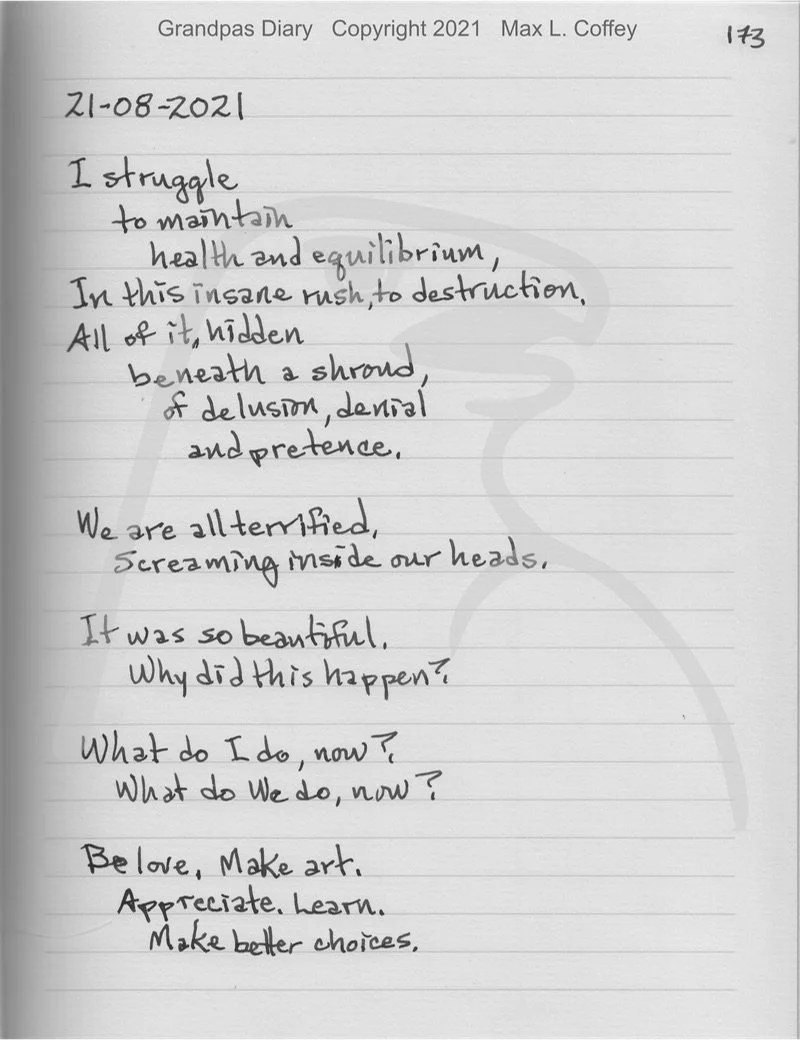 Grandpas Diary Copyright 2021 Max L. Coffey
173
21-08-2021
I struggle
to maintain
health and equilibrium,
In this insane rush, to destruction.
All of it, hidden
beneath a shroud,
of delusion, denial
and pretence.
We are all terrified,
Screaming inside our heads.
It was so beautiful.
Why did this happen?
What do I do, now?
What do We do, now?
Be love, Make art.
Appreciate. Learn.
Make better choices.